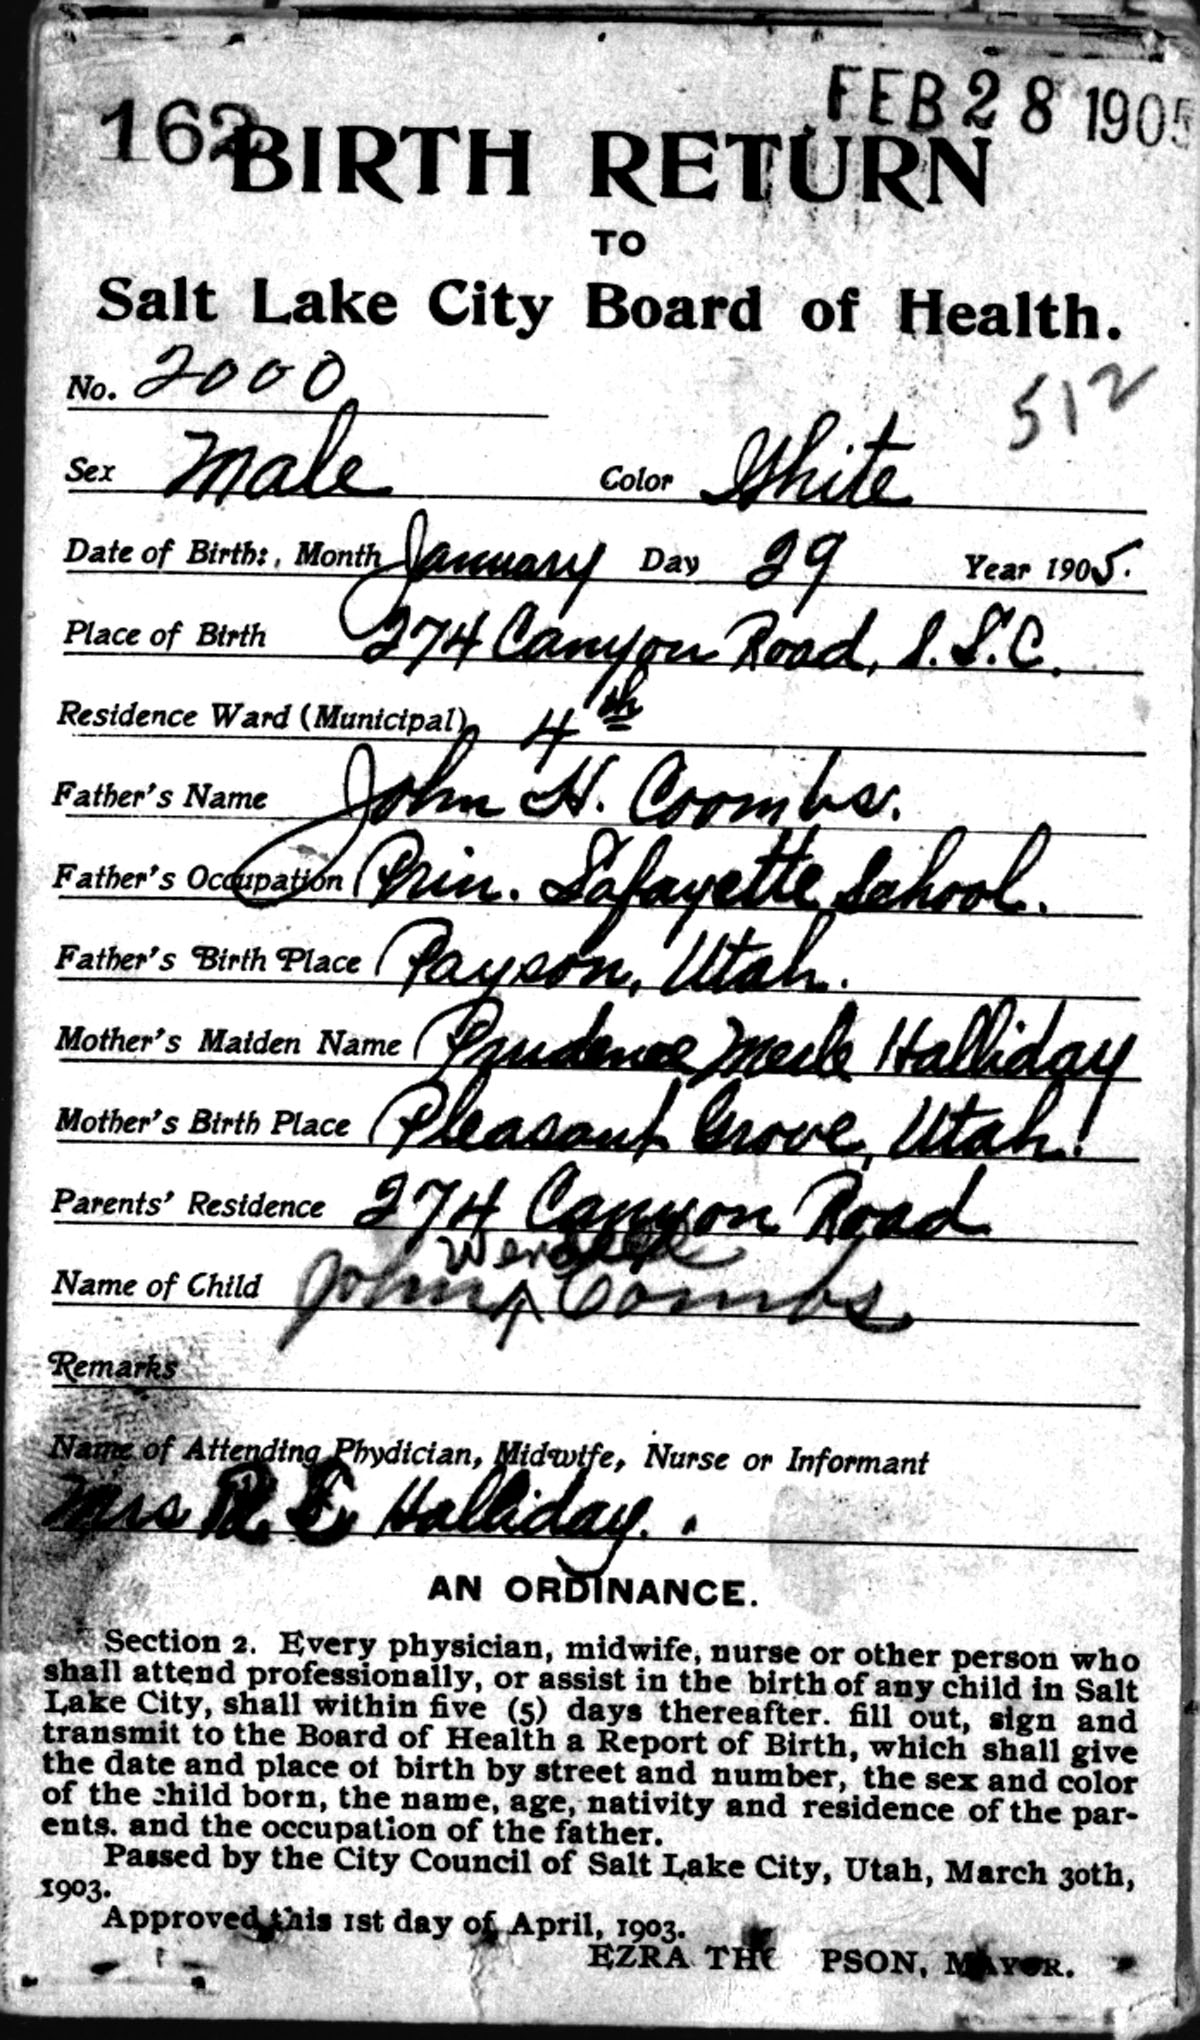 162
FEB 28 1905
BIRTH RETURN
TO
Salt Lake City Board of Health.
No. 2000
512
Sex Male Color White
Date of Birth:, Month January Day 29 Year 1905.
Place of Birth 274 Canyon Road, S. L. C.
Residence Ward (Municipal) 4th
Father's Name John H. Coombs.
Father's Occupation Prin. Lafayette School.
Father's Birth Place Payson, Utah.
Mother's Maiden Name Prudence Merle Halliday
Mother's Birth Place Pleasant Grove, Utah.
Parents' Residence 274 Canyon Road
Name of Child John ^ Coombs
Remarks
Name of Attending Phydician, Midwife, Nurse or Informant
Mrs R E Halliday.
AN ORDINANCE.
Section 2. Every physician, midwife, nurse or other person who
shall attend professionally, or assist in the birth of any child in Salt
Lake City, shall within five (5) days thereafter. fill out, sign and
transmit to the Board of Health a Report of Birth, which shall give
the date and place of birth by street and number, the sex and color
of the child born, the name, age, nativity and residence of the par-
ents. and the occupation of the father.
Passed by the City Council of Salt Lake City, Utah, March 30th,
1903.
Approved this 1st day of April, 1903.
EZRA THO PSON, MAYOR.